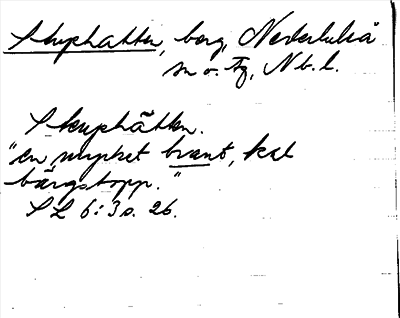 Skuphatten, berg, Nederluleå
sn o. tg, Nb. l.
Skuphätten.
"en mycket brant, kal
bärgstopp."
SL 6:3 s. 26.